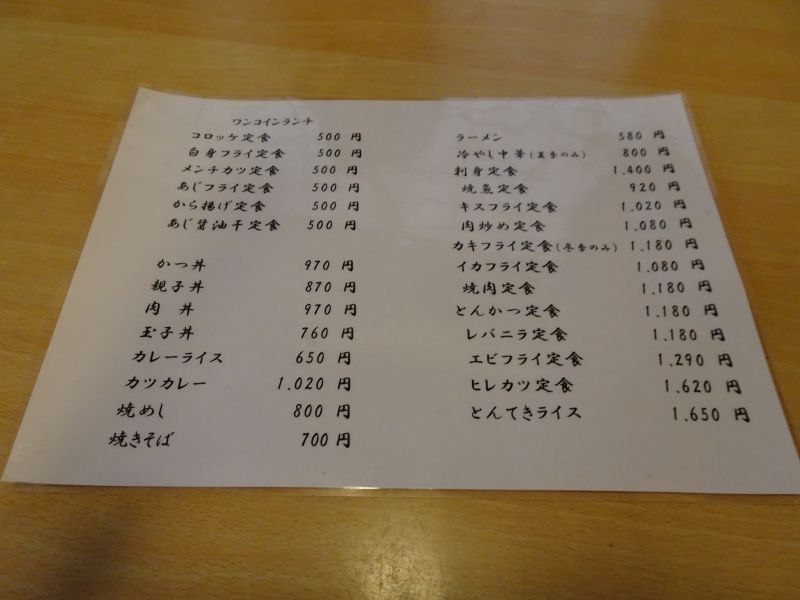 ワンコインランチ
コロッケ定食 500 円
白身フライ定食 500 円
メンチカツ定食 500 円
あじフライ定食 500 円
から揚げ定食 500 円
あじ醤油干定食 500 円
かつ丼 970 円
親子丼 870 円
肉 丼 970 円
玉子丼 760 円
カレーライス 650 円
カツカレー 1.020 円
焼めし 800 円
焼きそば 700 円
ラーメン 580 円
冷やし中華(夏季のみ) 800 円
刺身定食 1.400 円
焼魚定食 920 円
キスフライ定食 1.020 円
肉炒め定食 1.080 円
カキフライ定食(冬季のみ) 1.180 円
イカフライ定食 1.080 円
焼肉定食 1.180 円
とんかつ定食 1.180 円
レバニラ定食 1.180 円
エビフライ定食 1.290 円
ヒレカツ定食 1.620 円
とんてきライス 1.650 円